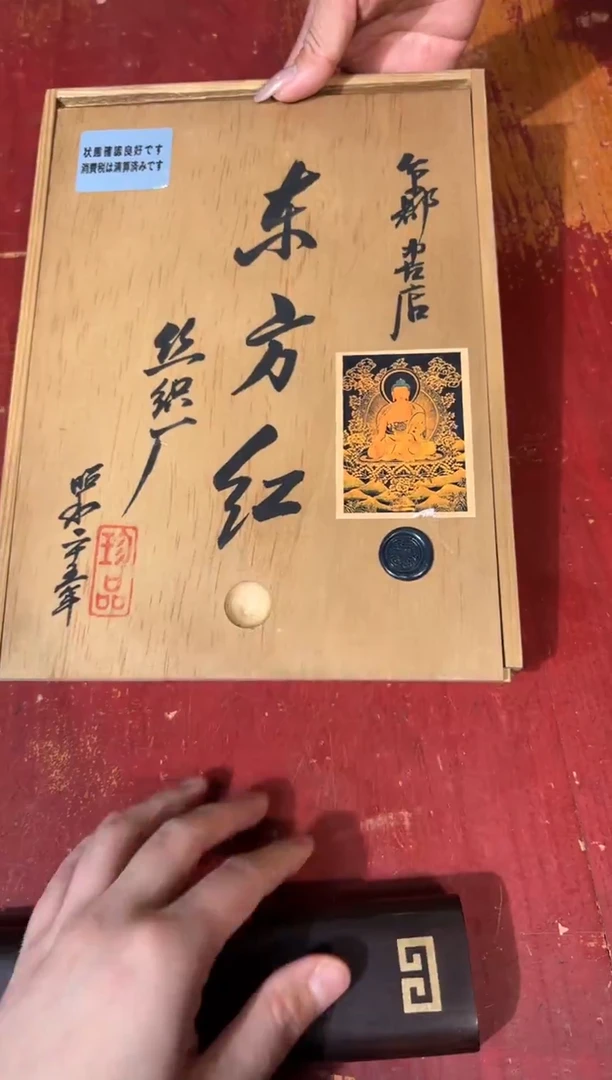 状態確認良好です
消費税は清算済みです
书店
东方红
丝织厂
昭和二十五年
珍品